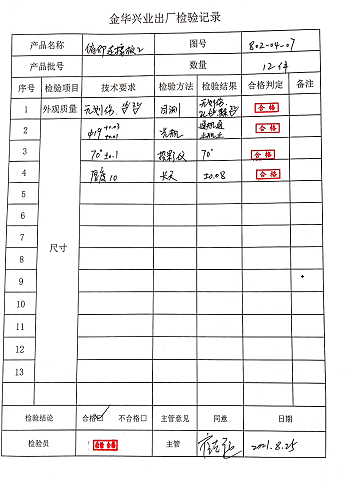 金华兴业出厂检验记录
产品名称 俯仰连接板2 图号 802-04-07
产品批号 数量 12件
序号 检验项目 技术要求 检验方法 检验结果 合格判定 备注
1 外观质量 无划伤、 目测 无划伤、 合格
2 φ19 合格
3 70°±0.1 投影仪 70° 合格
4 厚度10 卡尺 ±0.08 合格
5
6
7
尺寸
8
9
10
11
12
13
检验结论 合格☑ 不合格口 主管意见 同意 日期
检验员 检验 合格 主管 2021.8.25